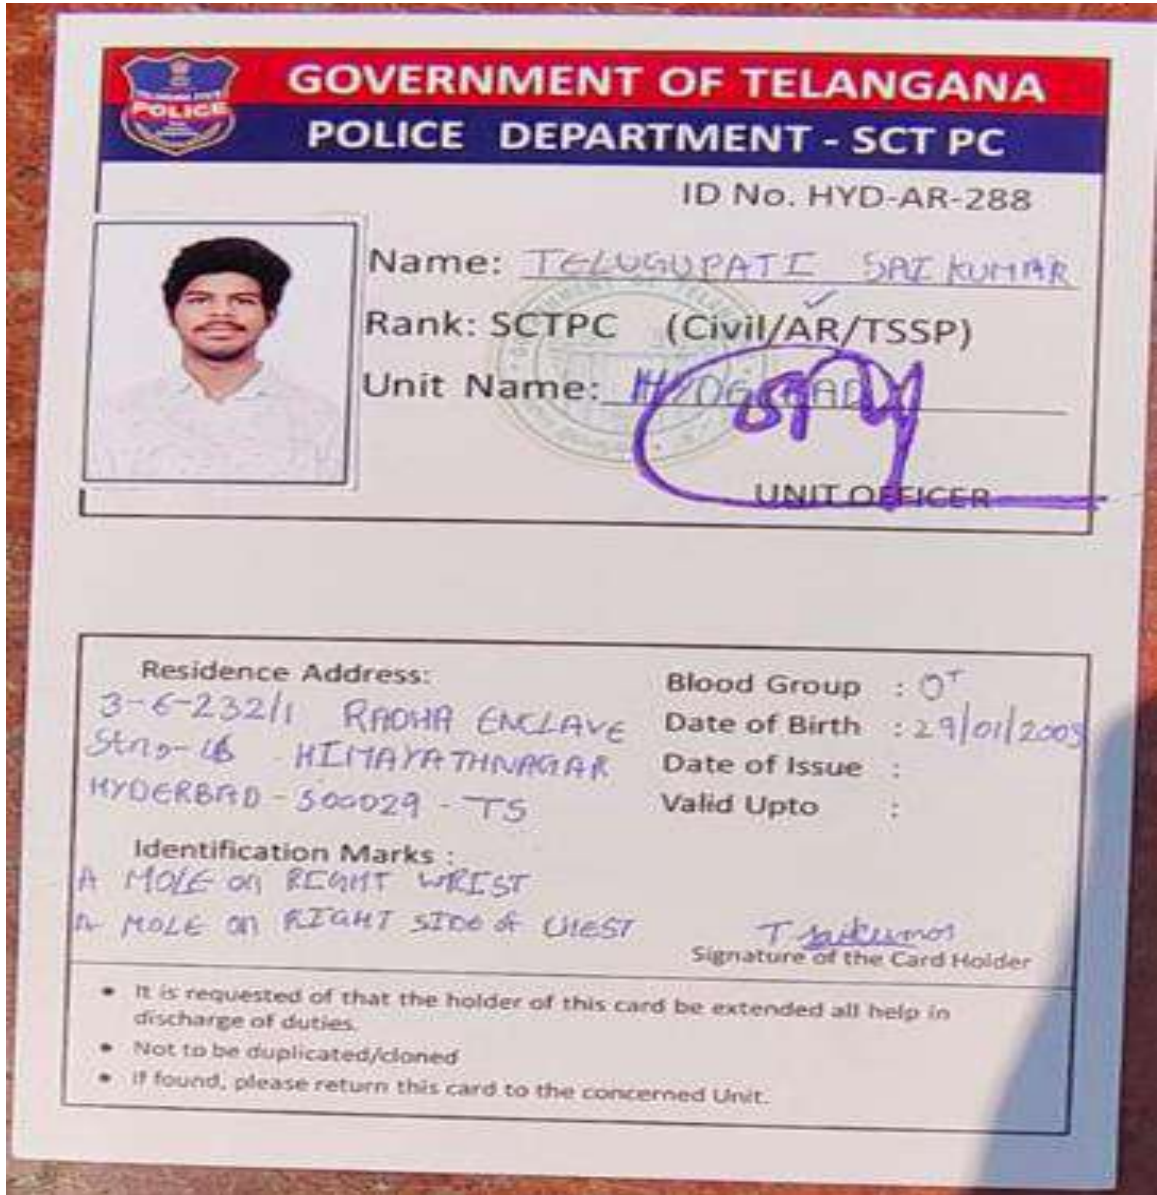 POLICE
GOVERNMENT OF TELANGANA
POLICE DEPARTMENT - SCT PC
ID No. HYD-AR-288
Name: TELUGUPATI SAI KUMAR
Rank: SCTPC (Civil/AR/TSSP)
Unit Name:
UNIT OFFICER
Residence Address:
3-6-232/1 RADHA ENCLAVE
HIMAYATHNAGAR
HYDERBAD - 500029 - TS
Blood Group :
Date of Birth : 29/01/2003
Date of Issue :
Valid Upto :
Identification Marks :
A MOLE on RIGHT WRIST
A MOLE on RIGHT SIDE of CHEST
T Saikumar
Signature of the Card Holder
• It is requested of that the holder of this card be extended all help in
discharge of duties.
• Not to be duplicated/cloned
• If found, please return this card to the concerned Unit.